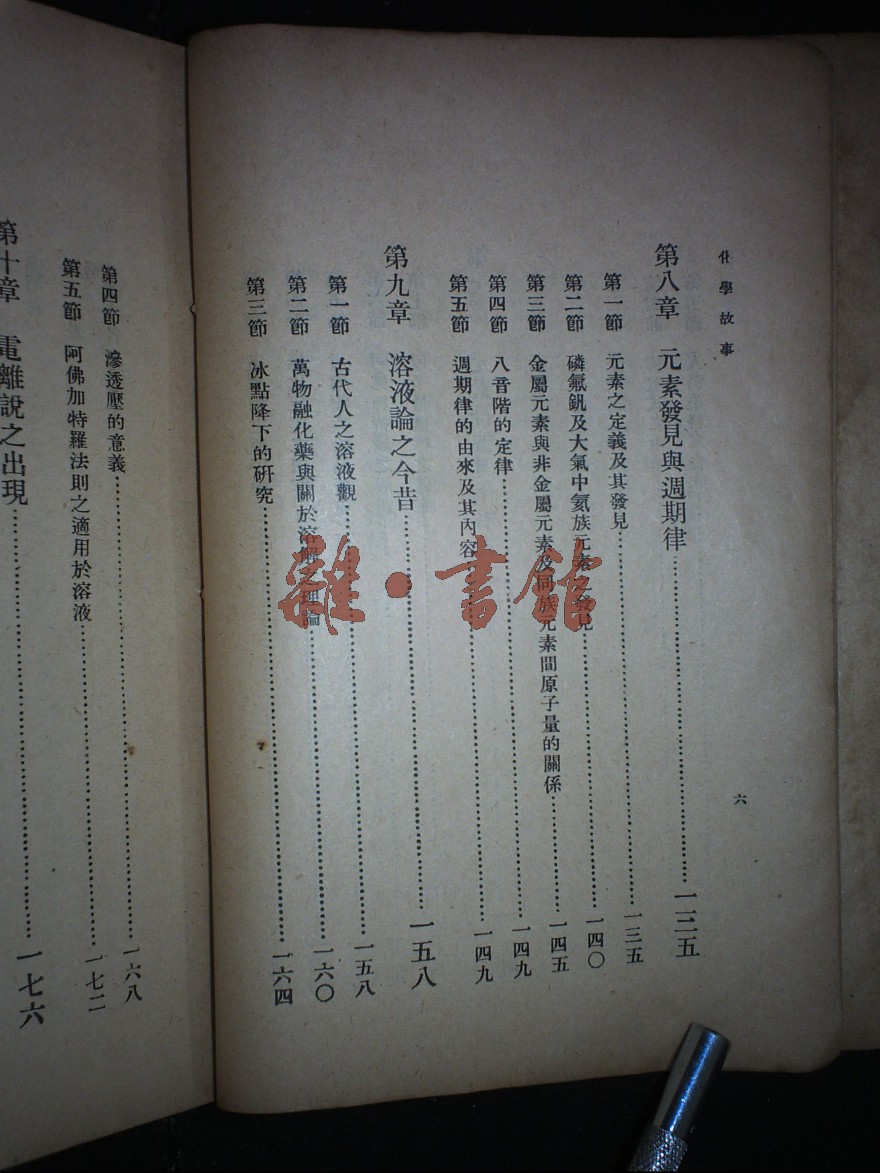 化學故事
六
第八章 元素發見與週期律……一三五
第一節 元素之定義及其發見……一三五
第二節 磷氟釩及大氣中氦族元素之發見……一四〇
第三節 金屬元素與非金屬元素及同族元素間原子量的關係……一四五
第四節 八音階的定律……一四九
第五節 週期律的由來及其內容……一四九
第九章 溶液論之今昔……一五八
第一節 古代人之溶液觀……一五八
第二節 萬物融化藥與關於溶解之理論……一六〇
第三節 冰點降下的研究……一六四
第四節 滲透壓的意義……一六八
第五節 阿佛加特羅法則之適用於溶液……一七二
第十章 電離說之出現……一七六
雜·書館